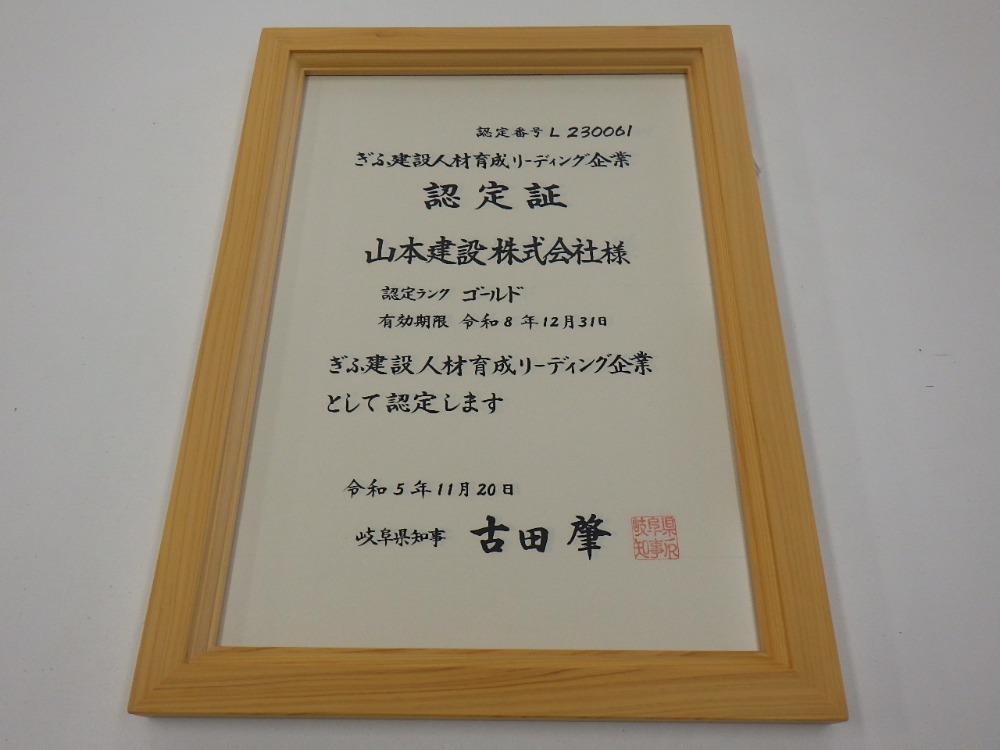 認定番号 L 230061
ぎふ建設人材育成リーディング企業
認定証
山本建設株式会社様
認定ランク ゴールド
有効期限 令和8年12月31日
ぎふ建設人材育成リーディング企業
として認定します
令和5年11月20日
岐阜県知事 古田 肇
岐阜県知事印